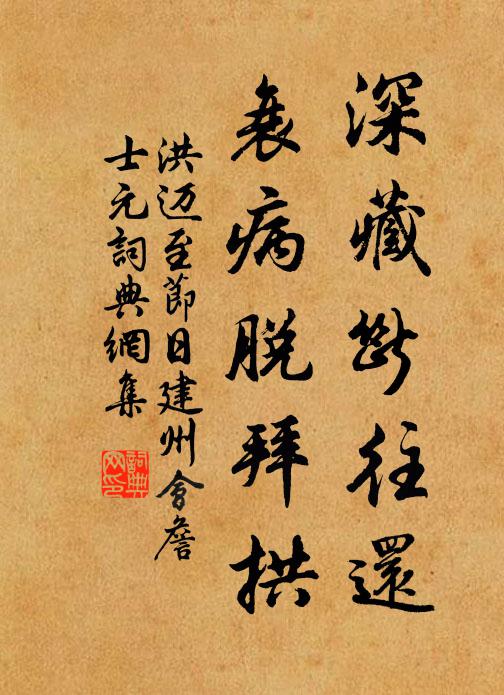 深藏斷往還
衰病脫拜拱
洪迈至節日建州會詹
士元詞典網集
詞典
网印